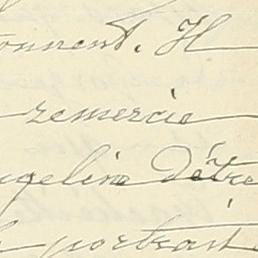 onnent. Il
remercie
ngeline d'être
portrait